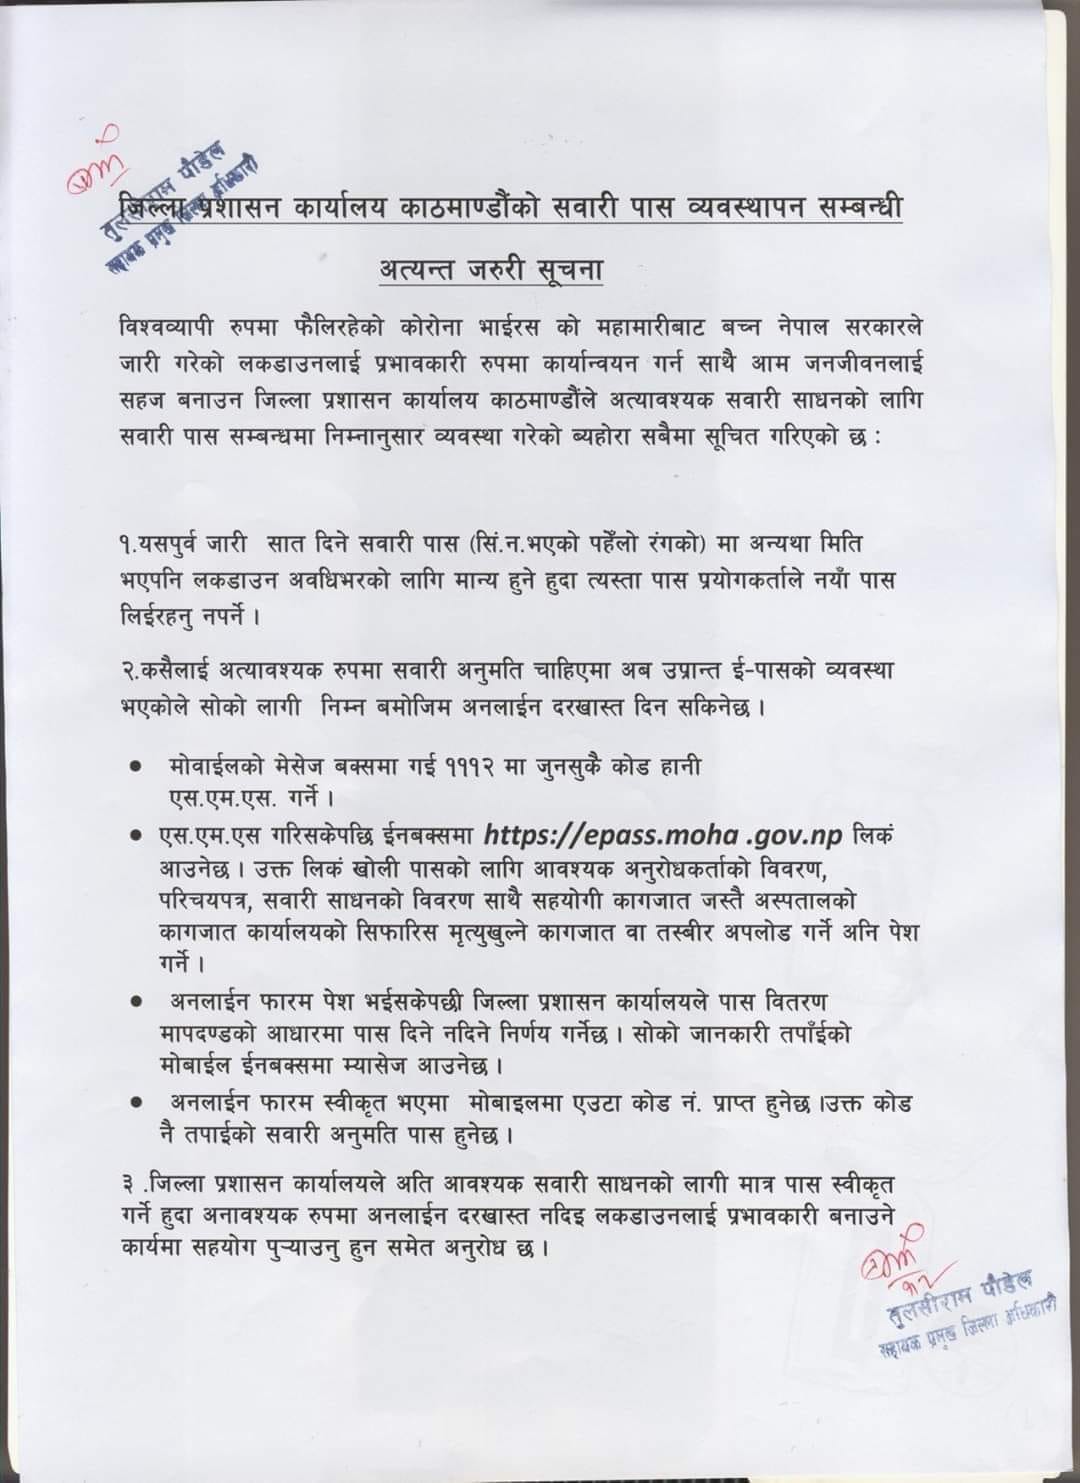 तुलसीराम पौडेल
सहायक प्रमुख जिल्ला अधिकारी
जिल्ला प्रशासन कार्यालय काठमाण्डौंको सवारी पास व्यवस्थापन सम्बन्धी
अत्यन्त जरुरी सूचना
विश्वव्यापी रुपमा फैलिरहेको कोरोना भाईरस को महामारीबाट बच्न नेपाल सरकारले
जारी गरेको लकडाउनलाई प्रभावकारी रुपमा कार्यान्वयन गर्न साथै आम जनजीवनलाई
सहज बनाउन जिल्ला प्रशासन कार्यालय काठमाण्डौंले अत्यावश्यक सवारी साधनको लागि
सवारी पास सम्बन्धमा निम्नानुसार व्यवस्था गरेको ब्यहोरा सबैमा सूचित गरिएको छ :
१.यसपुर्व जारी सात दिने सवारी पास (सिं.न.भएको पहेँलो रंगको) मा अन्यथा मिति
भएपनि लकडाउन अवधिभरको लागि मान्य हुने हुदा त्यस्ता पास प्रयोगकर्ताले नयाँ पास
लिईरहनु नपर्ने ।
२.कसैलाई अत्यावश्यक रुपमा सवारी अनुमति चाहिएमा अब उप्रान्त ई-पासको व्यवस्था
भएकोले सोको लागी निम्न बमोजिम अनलाईन दरखास्त दिन सकिनेछ ।
● मोवाईलको मेसेज बक्समा गई १११२ मा जुनसुकै कोड हानी
एस.एम.एस. गर्ने ।
● एस.एम.एस गरिसकेपछि ईनबक्समा https://epass.moha .gov.np लिकं
आउनेछ । उक्त लिकं खोली पासको लागि आवश्यक अनुरोधकर्ताको विवरण,
परिचयपत्र, सवारी साधनको विवरण साथै सहयोगी कागजात जस्तै अस्पतालको
कागजात कार्यालयको सिफारिस मृत्युखुल्ने कागजात वा तस्बीर अपलोड गर्ने अनि पेश
गर्ने ।
● अनलाईन फारम पेश भईसकेपछी जिल्ला प्रशासन कार्यालयले पास वितरण
मापदण्डको आधारमा पास दिने नदिने निर्णय गर्नेछ । सोको जानकारी तपाँईको
मोबाईल ईनबक्समा म्यासेज आउनेछ ।
● अनलाईन फारम स्वीकृत भएमा मोबाइलमा एउटा कोड नं. प्राप्त हुनेछ ।उक्त कोड
नै तपाईको सवारी अनुमति पास हुनेछ ।
३ .जिल्ला प्रशासन कार्यालयले अति आवश्यक सवारी साधनको लागी मात्र पास स्वीकृत
गर्ने हुदा अनावश्यक रुपमा अनलाईन दरखास्त नदिइ लकडाउनलाई प्रभावकारी बनाउने
कार्यमा सहयोग पुऱ्याउनु हुन समेत अनुरोध छ ।
तुलसीराम पौडेल
सहायक प्रमुख जिल्ला अधिकारी